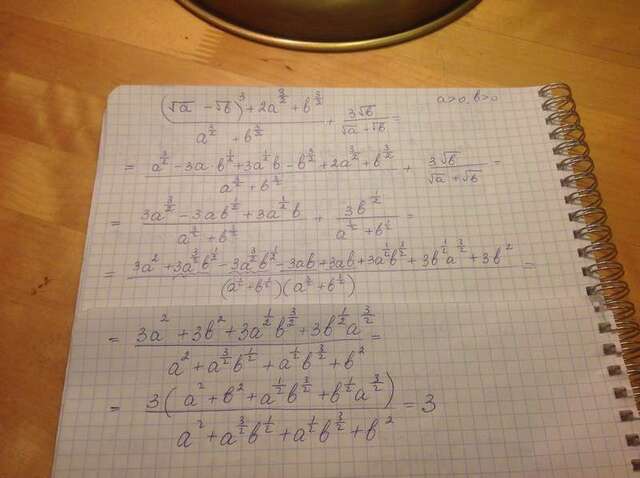 ((√a - √b)³ + 2a^(3/2) + b^(3/2)) / (a^(3/2) + b^(3/2)) + 3√b / (√a + √b) = a>0, b>0
= (a^(3/2) - 3ab^(1/2) + 3a^(1/2)b - b^(3/2) + 2a^(3/2) + b^(3/2)) / (a^(3/2) + b^(3/2)) + 3√b / (√a + √b) =
= (3a^(3/2) - 3ab^(1/2) + 3a^(1/2)b) / (a^(3/2) + b^(3/2)) + 3b^(1/2) / (a^(1/2) + b^(1/2)) =
= (3a² + 3a^(3/2)b^(1/2) - 3a^(3/2)b^(1/2) - 3ab + 3ab + 3a^(1/2)b^(3/2) + 3b^(1/2)a^(3/2) + 3b²) / ((a^(1/2) + b^(1/2))(a^(3/2) + b^(3/2))) =
= (3a² + 3b² + 3a^(1/2)b^(3/2) + 3b^(1/2)a^(3/2)) / (a² + a^(3/2)b^(1/2) + a^(1/2)b^(3/2) + b²) =
= 3(a² + b² + a^(1/2)b^(3/2) + b^(1/2)a^(3/2)) / (a² + a^(3/2)b^(1/2) + a^(1/2)b^(3/2) + b²) = 3